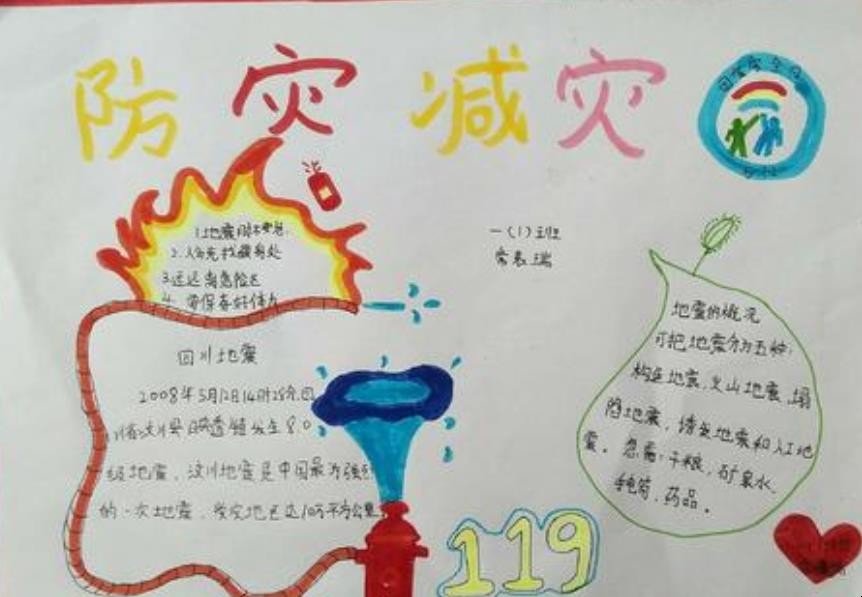 防灾减灾
国家安全日
1.地震时不要急.
2.人多先找藏身处
3.远远离危险区
4.要保存好体力
一(1)班
常表瑞
四川地震
2008年5月12日14时28分,四
川省汶川县映秀镇发生8.0
级地震,汶川地震是中国最为强烈
的一次地震,受灾地区达10万平方公里
地震的概况
可把地震分为五种:
构造地震,火山地震,塌
陷地震,诱发地震和人工地
震。急需:干粮,矿泉水,
手电筒,药品。
119